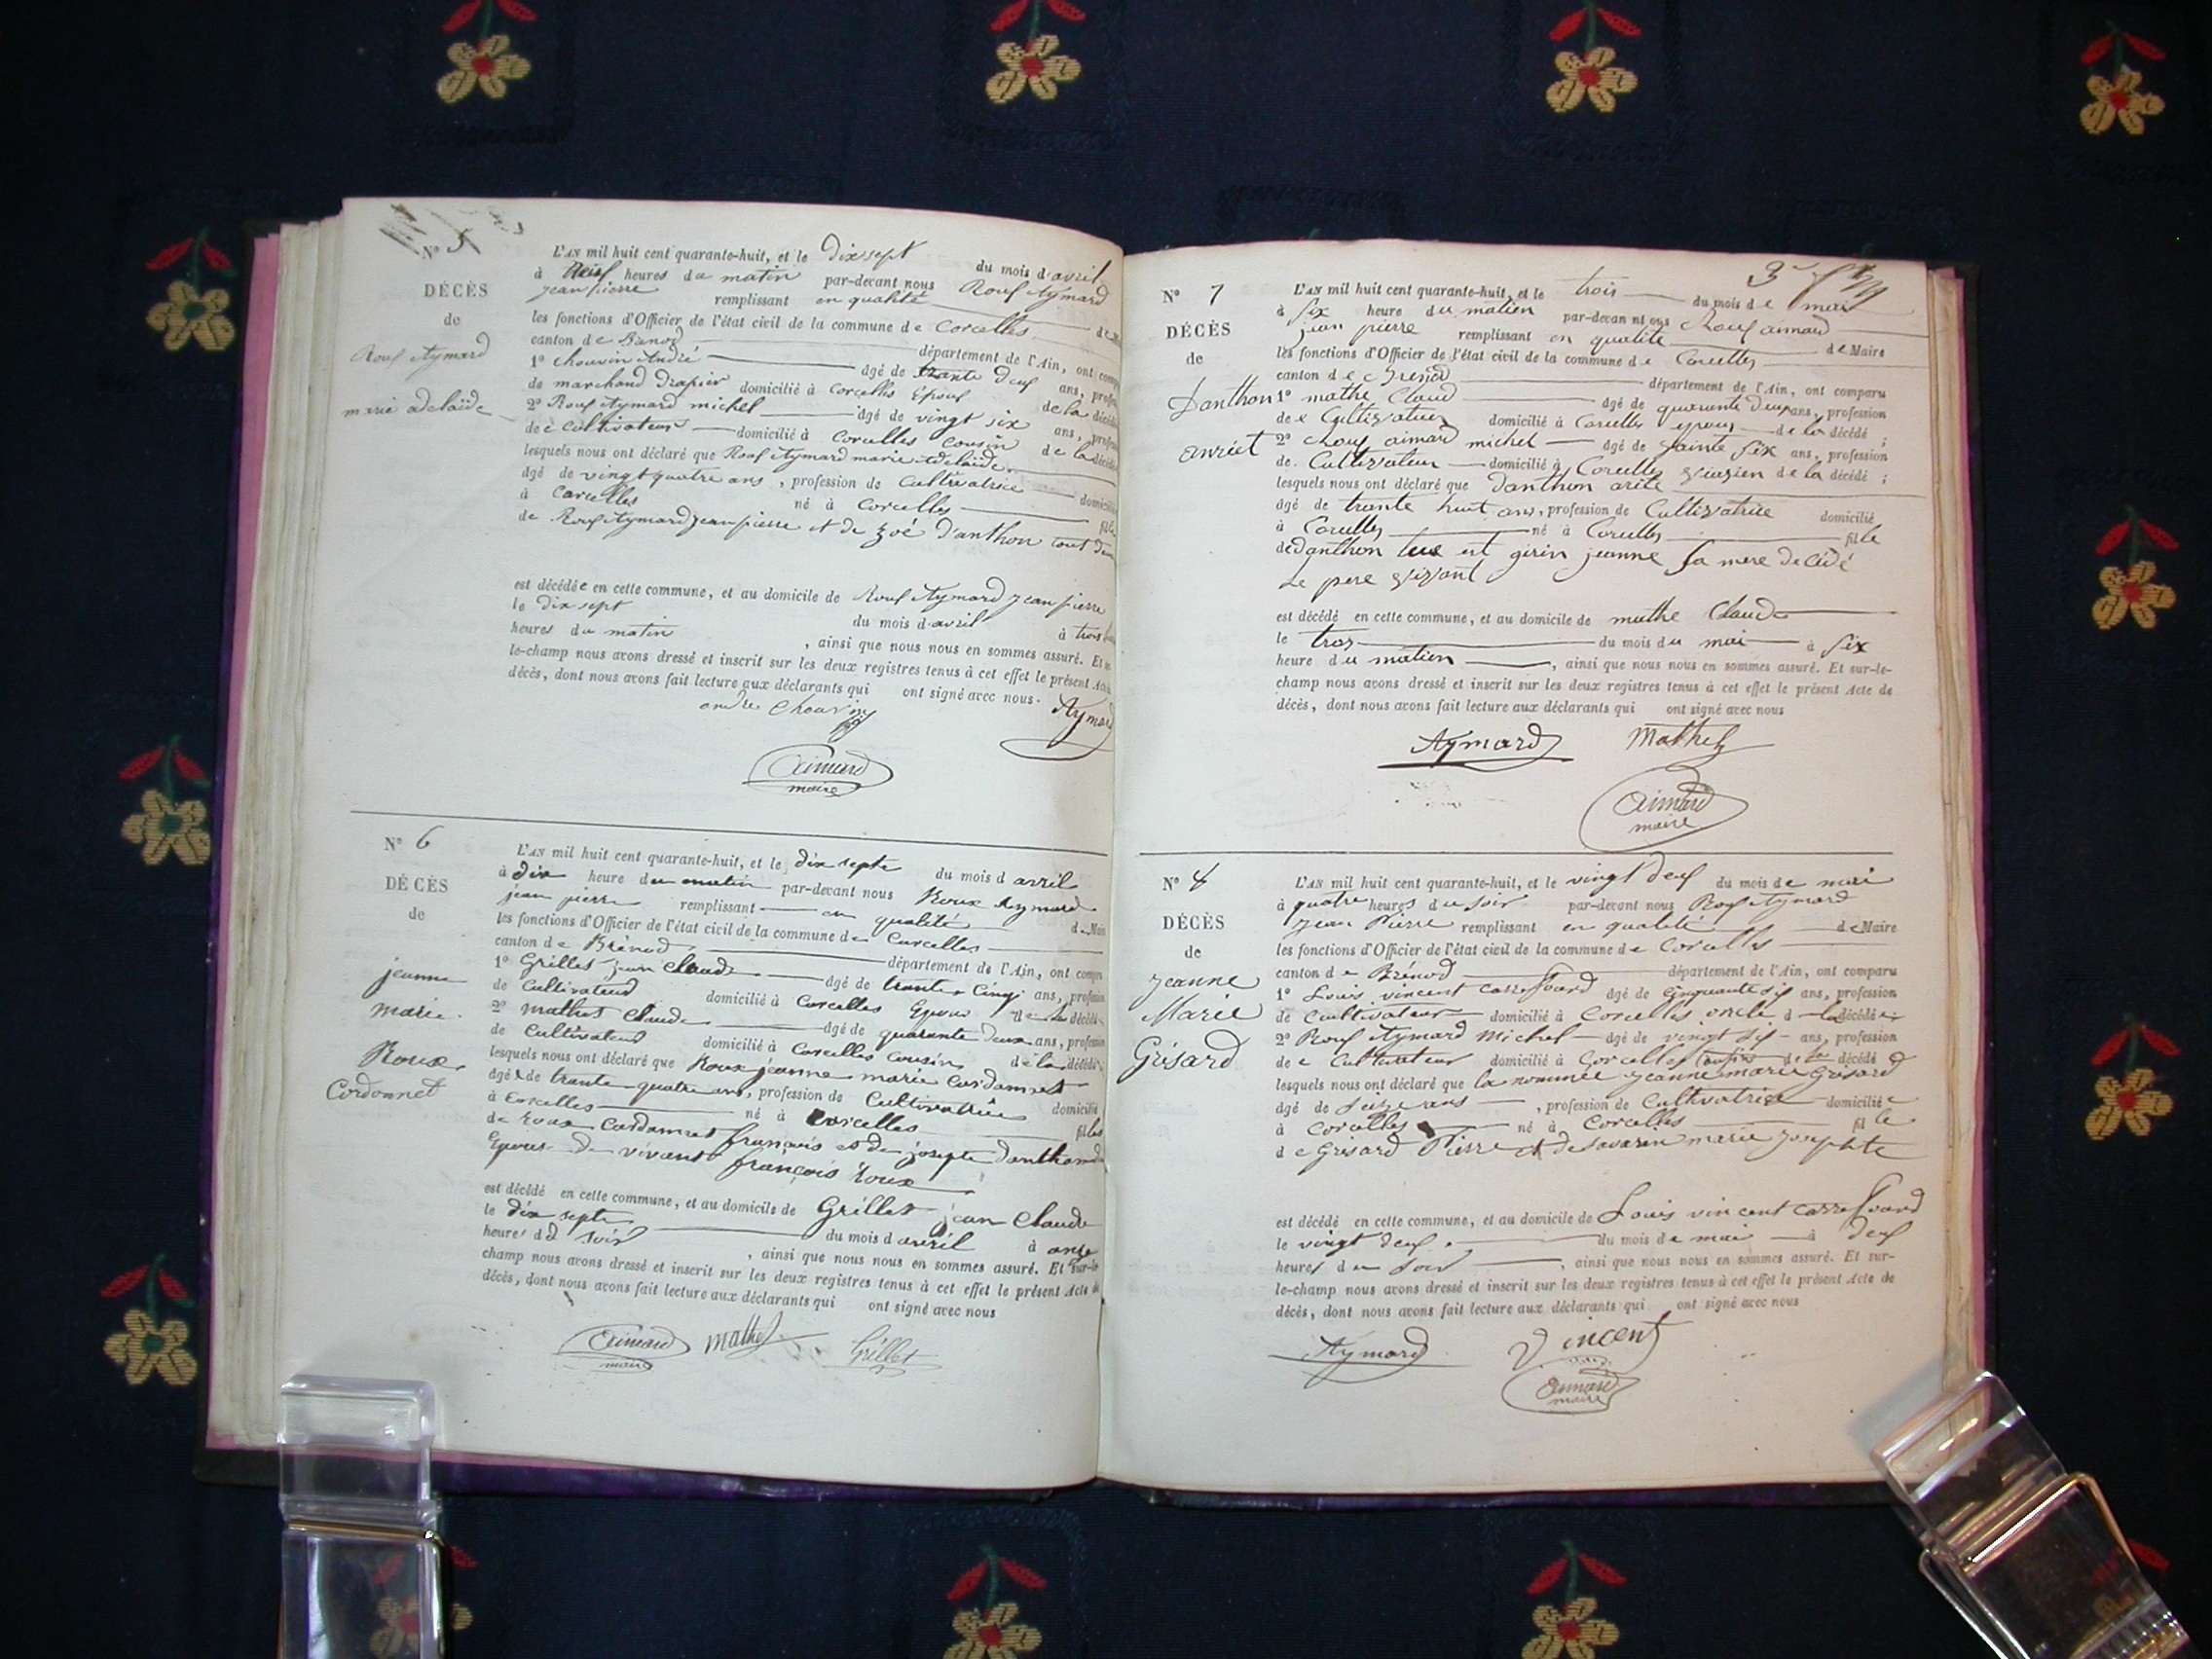 N° 5
DÉCÈS
de
Rouf Aymard
marie adelaïde
L'AN mil huit cent quarante-huit, et le Dix sept du mois d'avril
à neuf heures du matin par-devant nous Rouf Aymard
jean pierre remplissant en qualité de Maire
les fonctions d'Officier de l'état civil de la commune de Corcelles
canton de département de l'Ain, ont comparu
1° Chouvin André âgé de trante deuf ans, profession
de marchand drapier domicilié à Corcelles Epouf de la décédée
2° Rouf Aymard michel âgé de vingt six ans, profession
de cultivateur domicilié à Corcelles cousin de la décédée
lesquels nous ont déclaré que Rouf Aymard marie Adelaïde
âgé de vingt quatre ans, profession de Cultivatrice domicilié
à Corcelles né à Corcelles fille
de Rouf Aymard jean pierre et de Zoé d'anthon tout deux
est décédée en cette commune, et au domicile de Rouf Aymard jean pierre
le dix sept du mois d'avril à trois
heures du matin, ainsi que nous nous en sommes assuré. Et sur-
le-champ nous avons dressé et inscrit sur les deux registres tenus à cet effet le présent Acte
décès, dont nous avons fait lecture aux déclarants qui ont signé avec nous.
andre Chouvin Aymard
Aimard
maire
N° 6
DÉCÈS
de
jeanne
marie
Roux
Cordonnet
L'AN mil huit cent quarante-huit, et le dix septe du mois d avril
à dix heure du matin par-devant nous Roux Aymard
jean pierre remplissant en qualité de Maire
les fonctions d'Officier de l'état civil de la commune de Corcelles
canton de Brénod département de l'Ain, ont comparu
1° Grillet jean Claude âgé de trante Cinq ans, profession
de Cultivateur domicilié à Corcelles Epoux de la décédé
2° mathet Claude âgé de quarante deux ans, profession
de Cultivateur domicilié à Corcelles Cousin de la décédé
lesquels nous ont déclaré que Roux jeanne marie Cardonnet
âgé de trante quatre ans, profession de Cultivatrice domicilié
à Corcelles né à Corcelles fille
de Roux Cardonnet françois et de josepte Danthon
Epouse de vivant françois Roux
est décédé en cette commune, et au domicile de Grillet jean Claude
le dix septe du mois d avril à onze
heure du soir, ainsi que nous nous en sommes assuré. Et sur-le-
champ nous avons dressé et inscrit sur les deux registres tenus à cet effet le présent Acte de
décès, dont nous avons fait lecture aux déclarants qui ont signé avec nous
Aimard mathet Grillet
maire
N° 7
DÉCÈS
de
Danthon
anriet
L'AN mil huit cent quarante-huit, et le trois du mois de mai
à six heure du matien par-devant nous Rouf aimard
jean pierre remplissant en qualité de Maire
les fonctions d'Officier de l'état civil de la commune de Corcelles
canton de Brenod département de l'Ain, ont comparu
1° mathe Claud âgé de quarante deux ans, profession
de Cultivateur domicilié à Corcelles epoux de la décédé;
2° Rouf aimard michel âgé de six ans, profession
de Cultivateur domicilié à Corcelles de la décédé;
lesquels nous ont déclaré que Danthon
âgé de trante huit ans, profession de Cultivatrice domicilié
à Corcelles né à Corcelles fille
de danthon et girin jeanne sa mere decédé
Le pere vivant
est décédé en cette commune, et au domicile de mathe Claude
le tros du mois du mai à six
heure du matien, ainsi que nous nous en sommes assuré. Et sur-le-
champ nous avons dressé et inscrit sur les deux registres tenus à cet effet le présent Acte de
décès, dont nous avons fait lecture aux déclarants qui ont signé avec nous
Aymard Mathet
Aimard
maire
N° 8
DÉCÈS
de
jeanne
Marie
Grisard
L'AN mil huit cent quarante-huit, et le vingt deuf du mois de mai
à quatre heures du soir par-devant nous Rouf Aymard
Jean Pierre remplissant en qualité de Maire
les fonctions d'Officier de l'état civil de la commune de Corcelles
canton de Brénod département de l'Ain, ont comparu
1° Louis vincent âgé de cinquante six ans, profession
de cultivateur domicilié à Corcelles oncle d la décédée
2° Rouf Aymard Michel âgé de vingt six ans, profession
de Cultivateur domicilié à Corcelles cousin de la décédé
lesquels nous ont déclaré que la nommée jeanne marie Grisard
âgé de seize ans, profession de Cultivatrice domiciliée
à Corcelles né à Corcelles fille
de Grisard Pierre et de Savarin marie josephte
est décédé en cette commune, et au domicile de Louis vincent
le vingt deuf du mois de mai à deuf
heures du soir, ainsi que nous nous en sommes assuré. Et sur-
le-champ nous avons dressé et inscrit sur les deux registres tenus à cet effet le présent Acte de
décès, dont nous avons fait lecture aux déclarants qui ont signé avec nous
Aymard Vincent
Aimard
maire